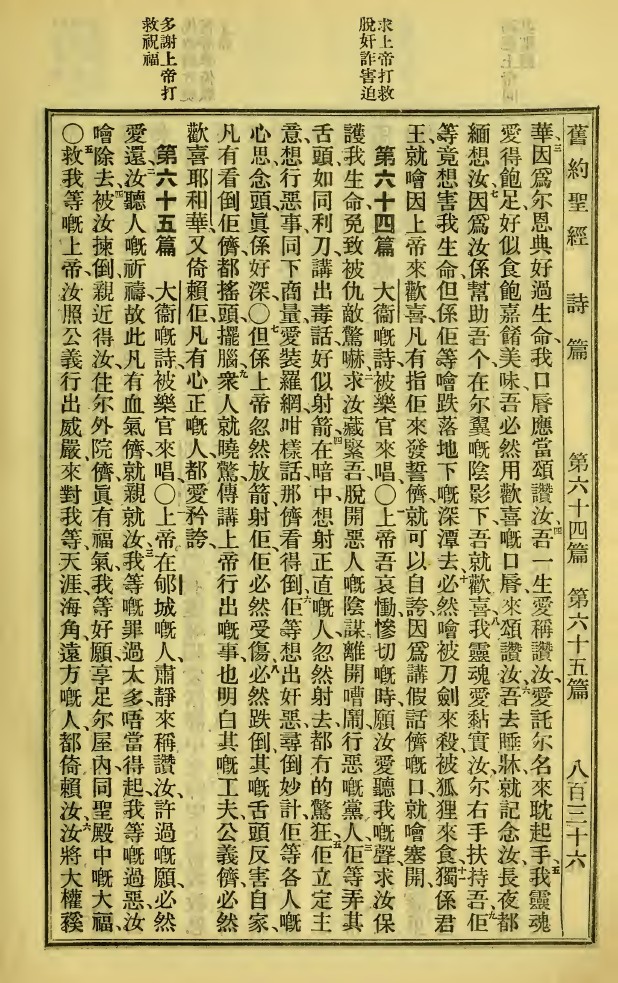 舊約聖經 詩篇 第六十四篇 第六十五篇 八百三十六
三華因爲尔恩典好過生命、我口脣應當頌讚汝、四吾一生愛稱讚汝、愛託尔名來耽起手、五我靈魂
愛得飽足、好似食飽嘉餚美味、吾必然用歡喜嘅口脣來頌讚汝、六吾去睡牀就記念汝、長夜都
緬想汝、七因爲汝係幫助吾个、在尔翼嘅陰影下、吾就歡喜、八我靈魂愛黏實汝、尔右手扶持吾、九佢
等竟想害我生命、但係佢等噲跌落地下嘅深潭去、十必然噲被刀劍來殺、被狐狸來食、十一獨係君
王就噲因上帝來歡喜、凡有指佢來發誓儕、就可以自誇、因爲講假話儕嘅口、就噲塞開、
求上帝打救
脫奸詐害迫
第六十四篇 大衞嘅詩、被樂官來唱、〇一上帝、吾哀慟慘切嘅時、願汝愛聽我嘅聲、求汝保
護我生命、免致被仇敵驚嚇、二求汝藏緊吾、脫開惡人嘅陰謀、離開嘈鬧行惡嘅黨人、三佢等弄其
舌頭如同利刀、講出毒話好似射箭、四在暗中想射正直嘅人、忽然射去、都冇的驚狂、五佢立定主
意想行惡事、同下商量愛裝羅網、咁樣話、那儕看得倒佢、六等想出奸惡、尋倒妙計、佢等各人嘅
心思念頭眞係好深、〇七但係上帝忽然放箭射佢、佢必然受傷、八必然跌倒、其嘅舌頭反害自家、
凡有看倒佢儕都搖頭擺腦、九衆人就曉驚、傳講上帝行出嘅事、也明白其嘅工夫、公義儕必然
歡喜耶和華、又倚賴佢、凡有心正嘅人都愛矜誇、
多謝上帝打
救祝福
第六十五篇 大衞嘅詩、被樂官來唱、〇一上帝在郇城嘅人、肅靜來稱讚汝、許過嘅願必然
愛還、二汝聽人嘅祈禱、故此凡有血氣儕就親就汝、三我等嘅罪過太多、唔當得起、我等嘅過惡、汝
噲除去、四被汝揀倒、親近得汝、住尔外院儕、眞有福氣、我等好願享足尔屋內、同聖殿中嘅大福、
〇五救我等嘅上帝、汝照公義行出威嚴來對我等、天涯海角、遠方嘅人、都倚賴汝、六汝將大權